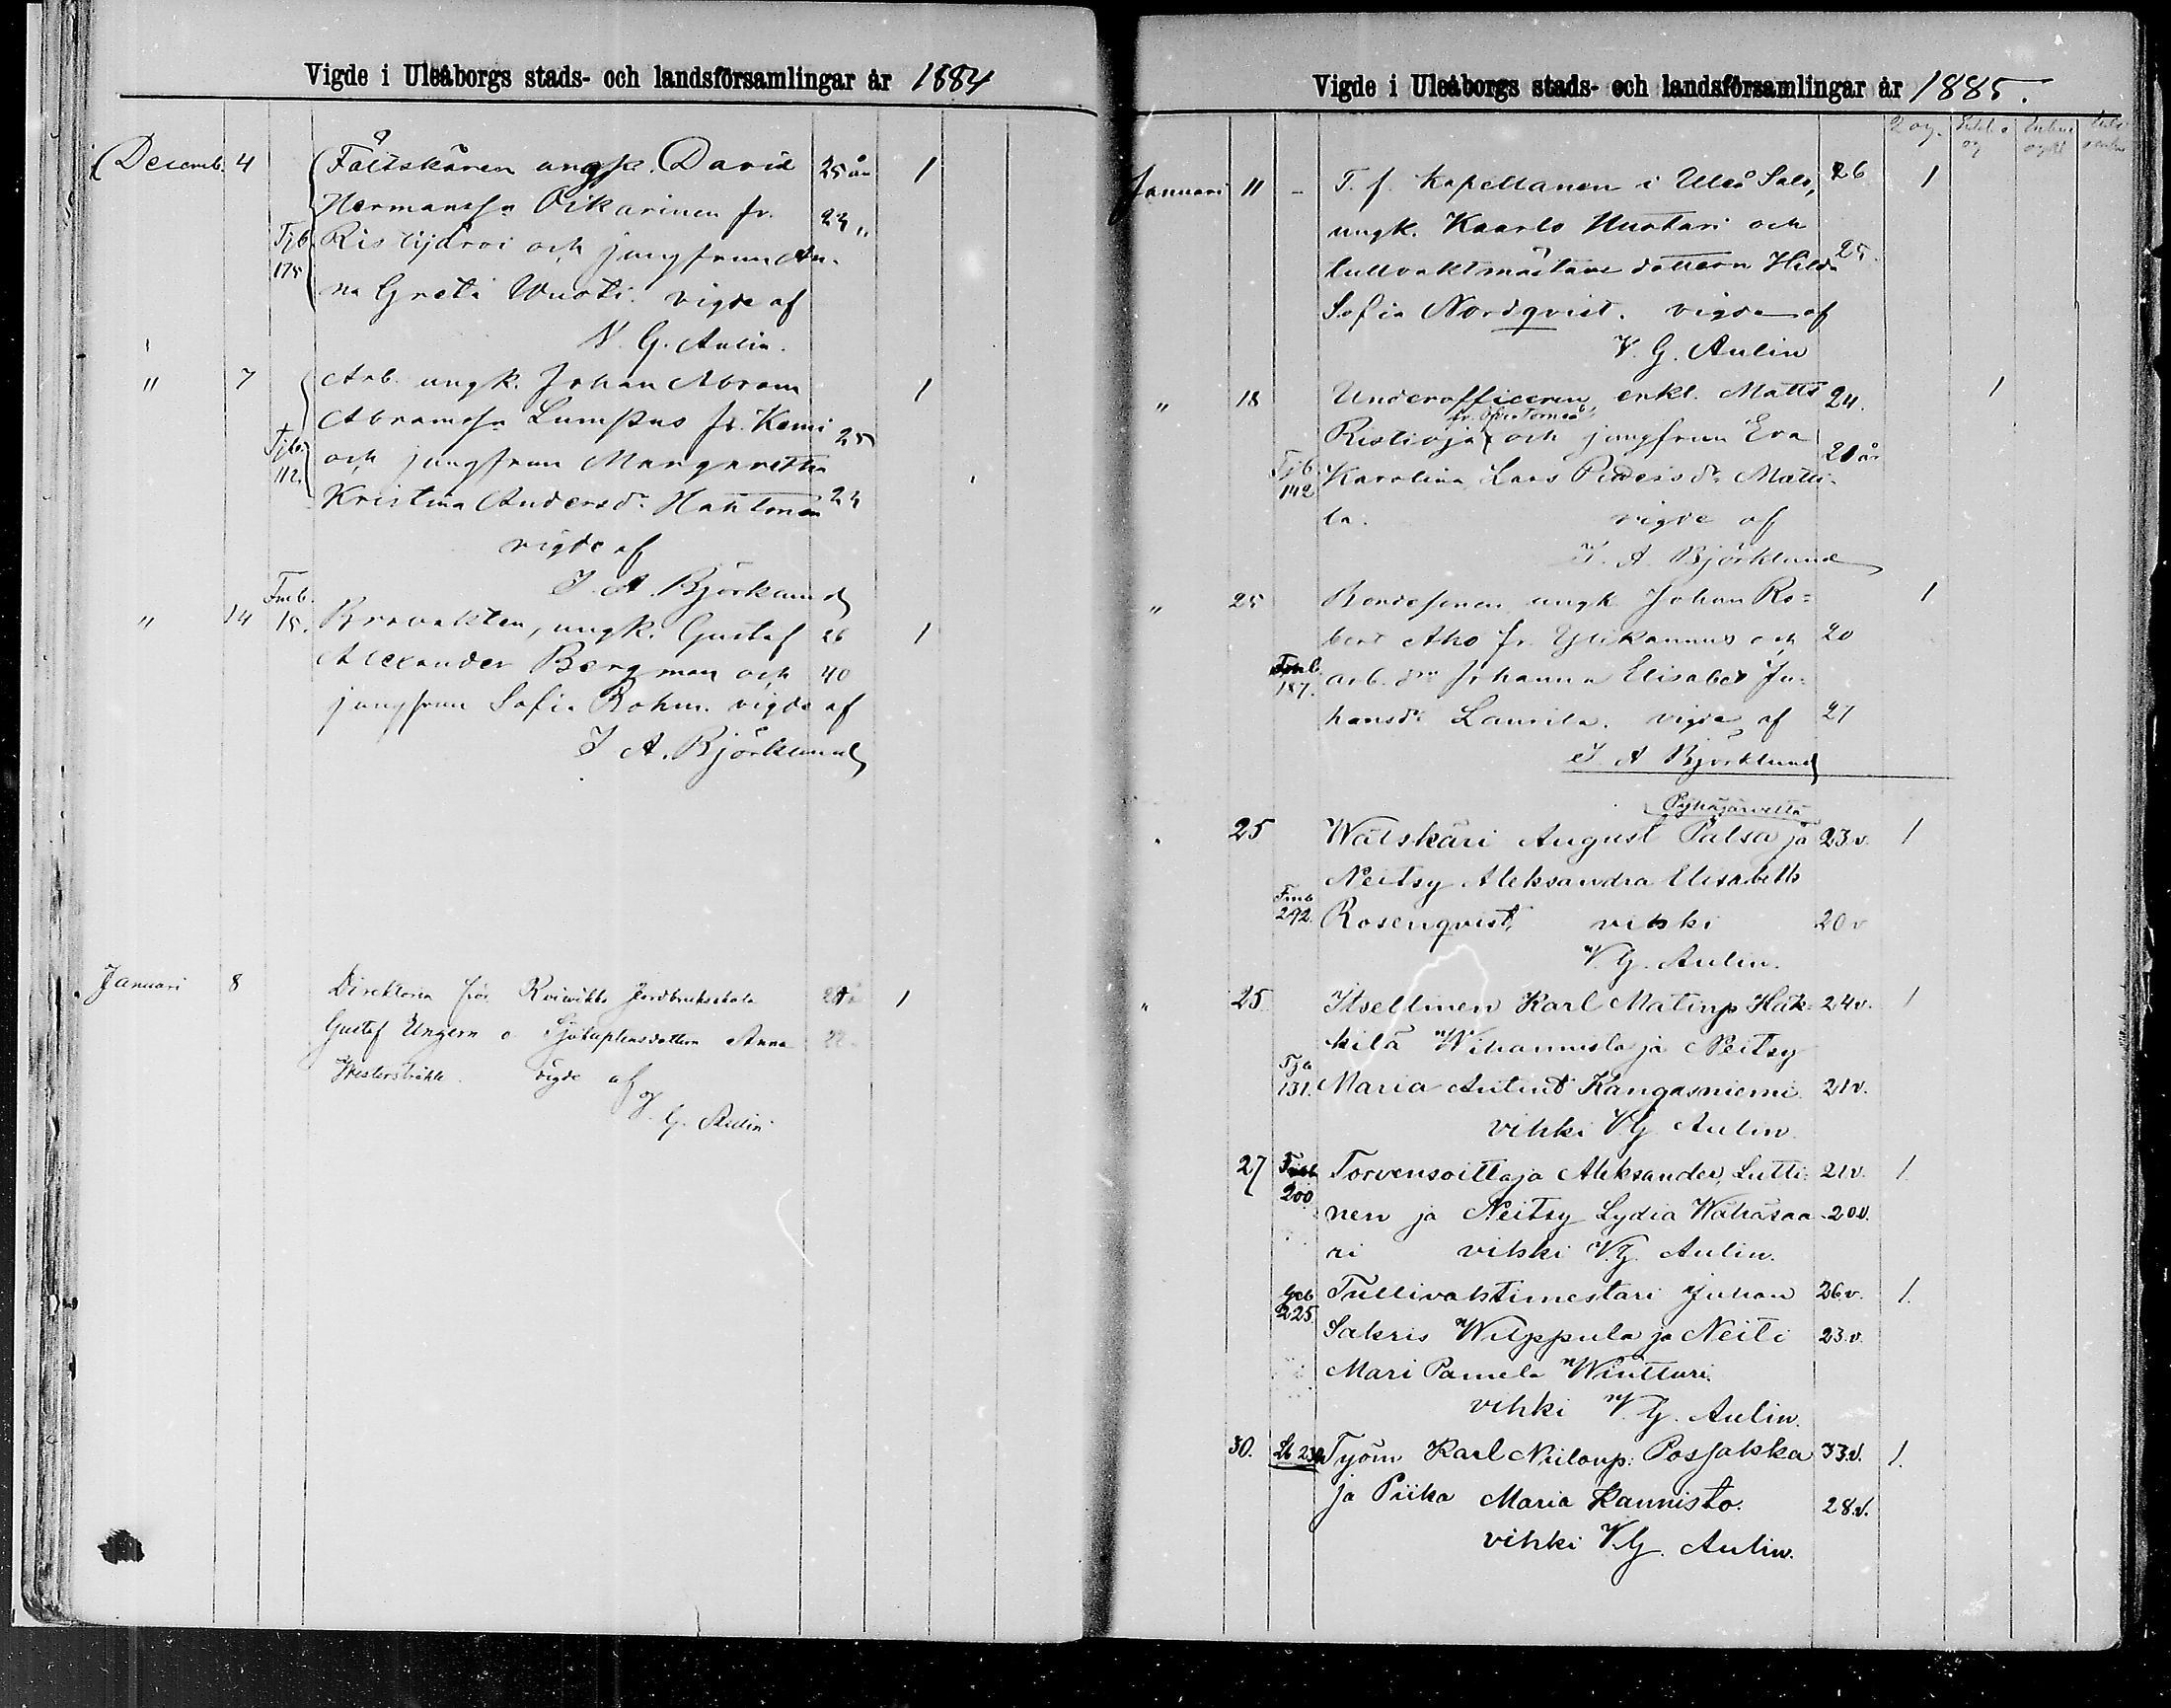 Vigde i Uleåborgs stads- och landsförsamlingar år 1884
Decemb. 4 Fältskären ungk. David 25 år 1
Hermanss. Oikarinen fr. 23 "
Tjb. 175 Ristijärvi och jungfrun An-
na Greta Wuoti. vigde af
V. G. Aulin.
" 7 Arb. ungk. Johan Abram 1
Abramss. Lumpus fr. Kemi 25
Tjb. 112. och jungfrun Margaretha
Kristina Andersdr. Hahtonen 23
vigde af
J. A. Björklund
" 14 Fmb. 15. Brovakten, ungk. Gustaf 26 1
Alexander Bergman och 40
jungfrun Sofia Bohm. vigde af
J. A. Björklund
Januari 8 Direktorn för Koivikko Jordbruksskola 1
Gustaf Ungern o Sjökaptensdottern Anna 22
vigde af
V. G. Aulin
Vigde i Uleåborgs stads- och landsförsamlingar år 1885.
2 og.
Januari 11 - T. f. Kapellanen i Uleå Salo, 26 1
ungk. Kaarlo Mustari och
tullvaktmästare dottern Hilda 25.
Sofia Nordqvist. vigde af
V. G. Aulin
" 18 Underofficeren, enkl. Matts 24. 1
fr. Öfvertorneå
Ristioja och jungfrun Eva
Tjb. 142 Karolina Lars Pedersdr. Matti- 21 år
la. vigde af
J. A. Björklund
" 25 Bondesonen ungk. Johan Ro- 1
bert Aho fr. Ylikannus och 20
187. arb. dr. Johanna Elisabet Jo-
hansdr. Laurila. vigde af 21
J. A Björklund
Pyhäjärveltä
25 Wälskäri August Palsa ja 23 v. 1
Neitsy Aleksandra Elisabeth
Fmb 292. Rosenqvist, vihki 20 v
V. G. Aulin.
" 25 Itsellinen Karl Matinp. Häk- 24 v. 1
kilä Wihannista ja Neitsy
131. Maria Antint. Kangasniemi 21 v.
vihki V. G. Aulin.
27 200 Torvensoittaja Aleksander Lutti- 21 v. 1.
nen ja Neitsy Lydia Wähäsaa- 20 v.
ri vihki V. G. Aulin.
225 Tullivahtimestari Juhan 26 v. 1.
Sakris Wilppula ja Neiti 23. v.
Mari Pamela Winttari
vihki V. G. Aulin.
30. Työm Karl Niilonp. Posjakka 33. v. 1.
ja Piika Maria Kannisto. 28. v.
vihki V. G. Aulin.